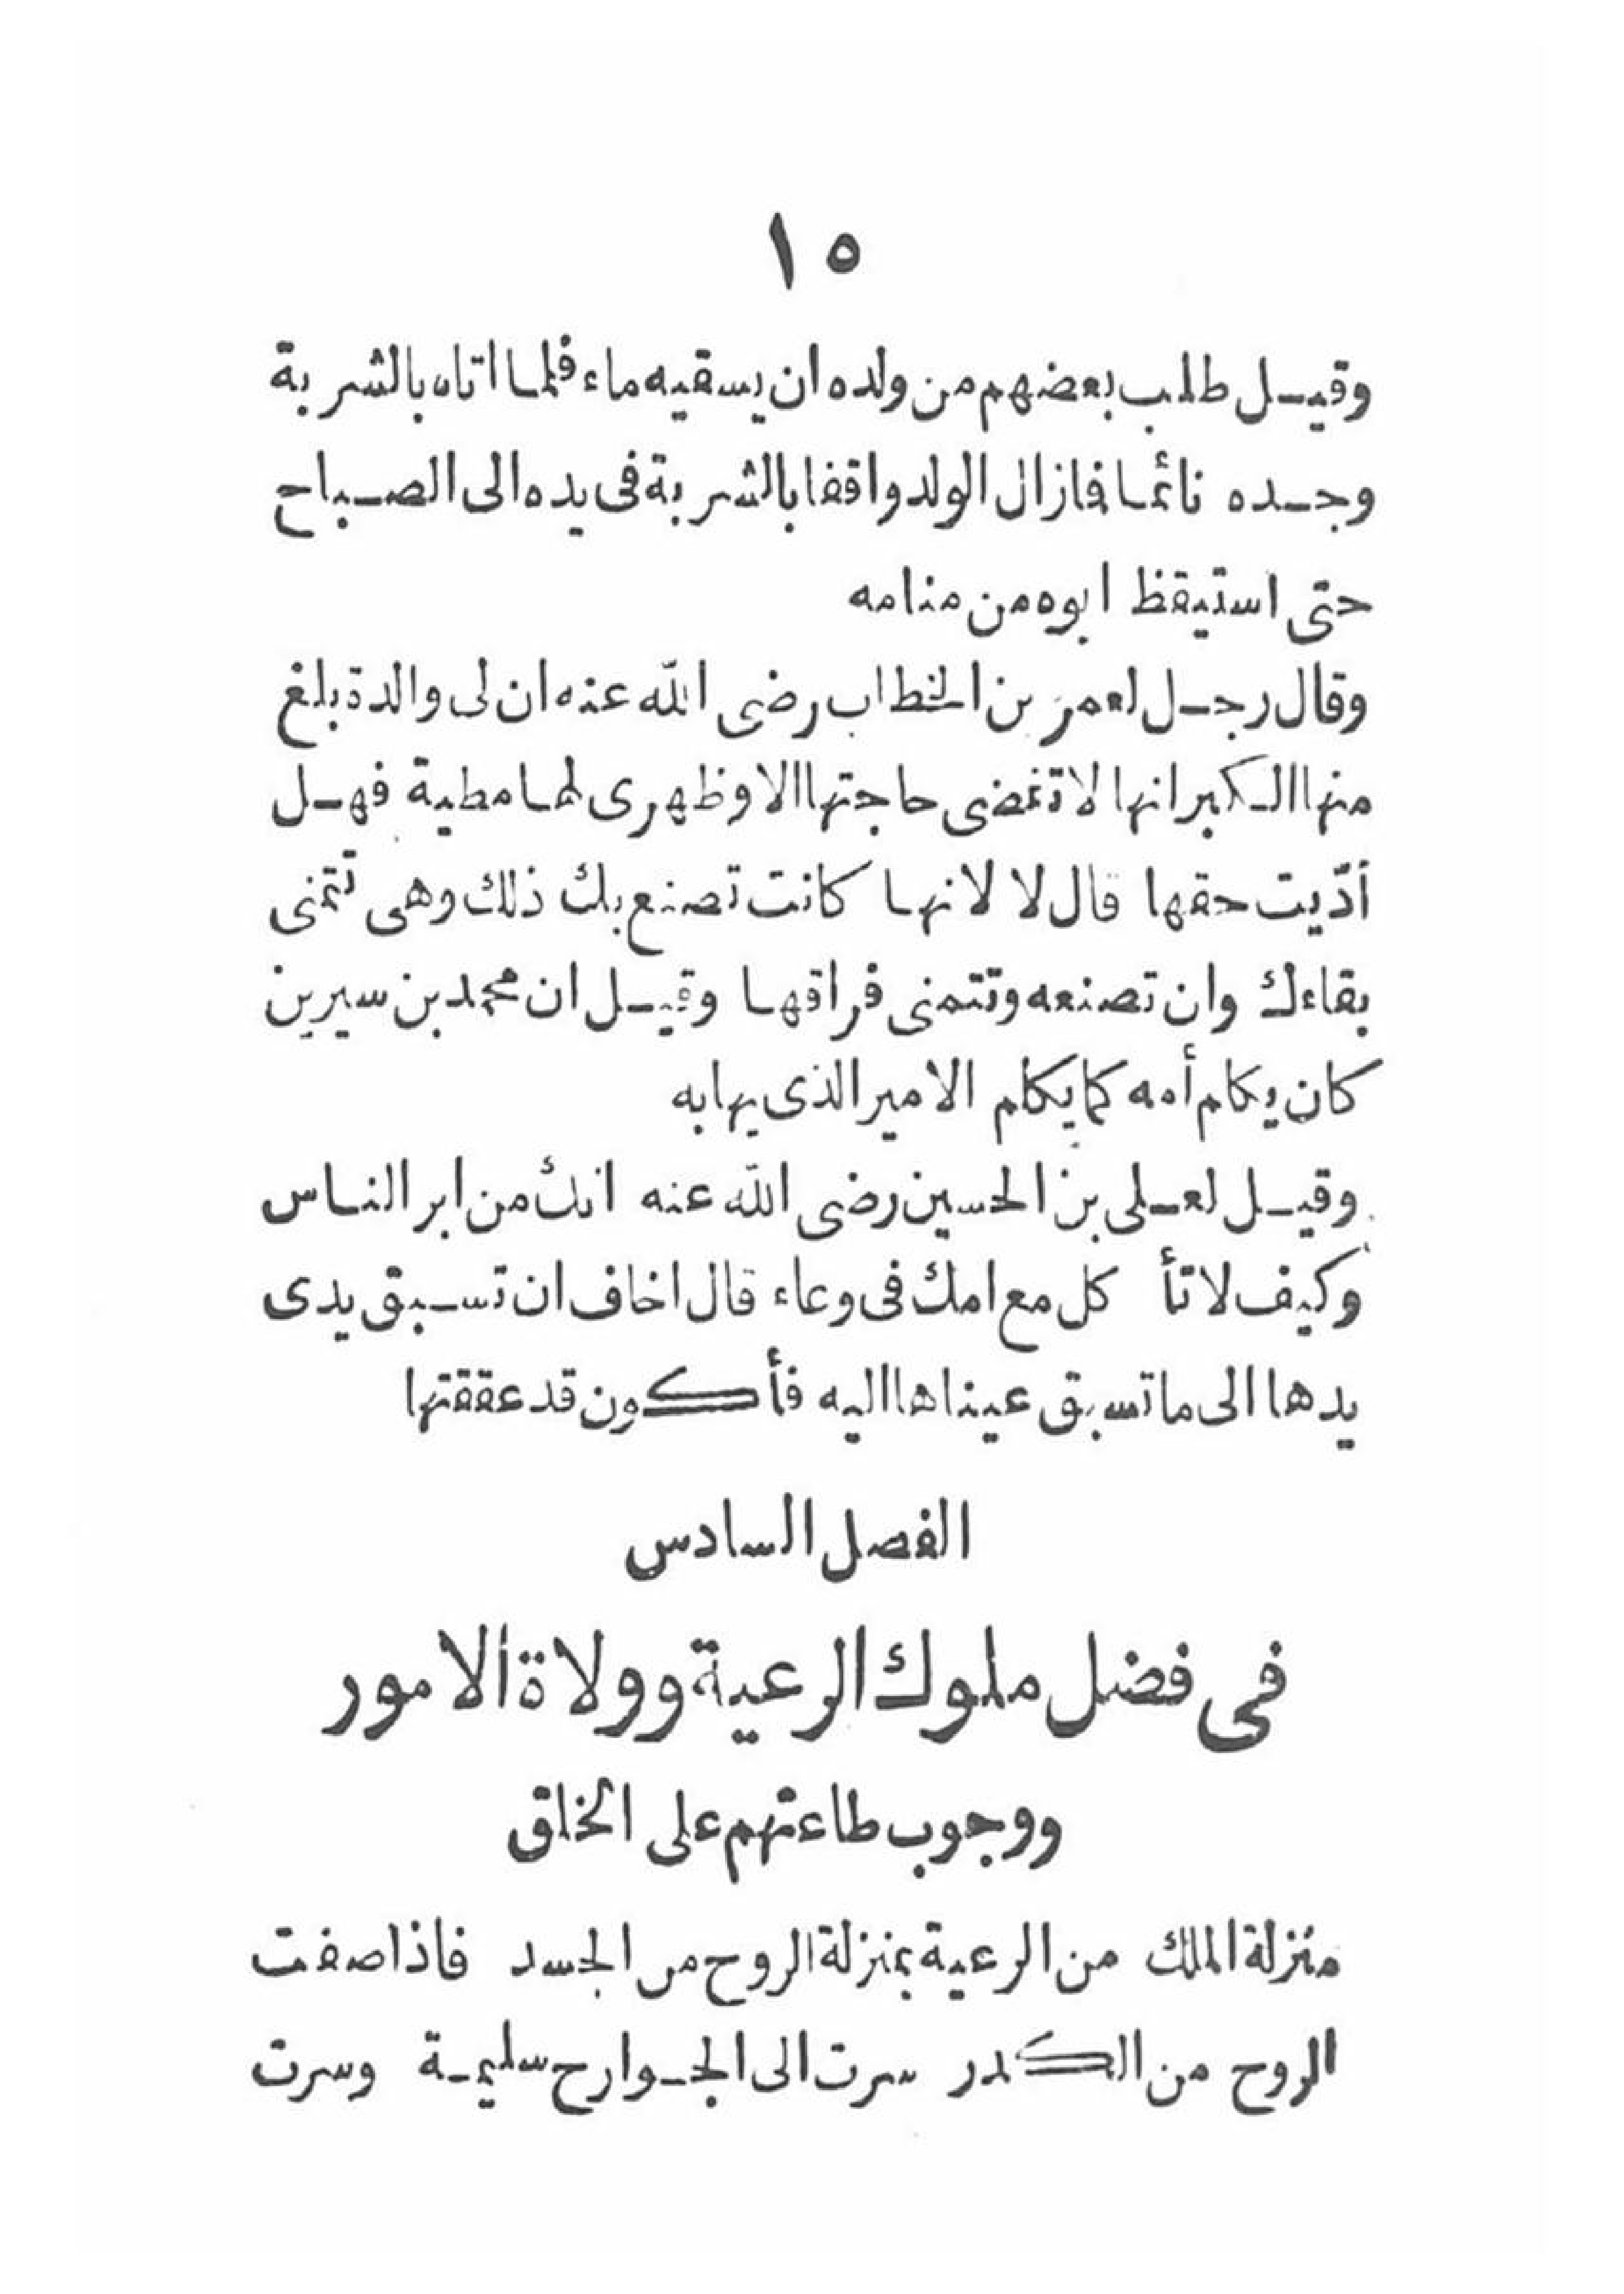 ١٥
وقيل طلب بعضهم من ولده ان يسقيه ماء فلما اتاه بالشربة
وجده نائما فازال الولد واقفا بالشربة فى يده الى الصباح
حتى استيقظ ابوه من منامه
وقال رجل لعمر بن الخطاب رضى الله عنه ان لى والدة بلغ
منها الكبر انها لا تقضى حاجتها الا وظهرى لها مطية فهل
أدّيت حقها قال لا لانها كانت تصنع بك ذلك وهى تتمنى
بقاءك وان تصنعه وتتمنى فراقها وقيل ان محمد بن سيرين
كان يكلم أمه كما يكلم الامير الذى يهابه
وقيل لعلى بن الحسين رضى الله عنه انك من ابر الناس
وكيف لا تأكل مع امك فى وعاء قال اخاف ان تسبق يدى
يدها الى ما تسبق عيناها اليه فأكون قد عققتها
الفصل السادس
فى فضل ملوك الرعية وولاة الامور
ووجوب طاعتهم على الخلق
منزلة الملك من الرعية بمنزلة الروح من الجسد فاذا صفت
الروح من الكدر سرت الى الجوارح سليمة وسرت